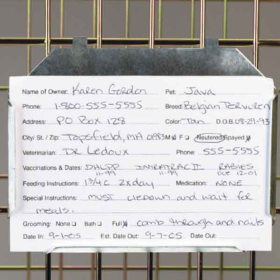 Name of Owner: Karen Gordon Pet: Java
Phone: 1-800-555-5555 Breed: Belgian Tervuren
Address: PO Box 128 Color: Tan D.O.B. 09-29-93
City/ St. / Zip: Topsfield, MA M F Neutered/Spayed
Veterinarian: DR Ledoux Phone: 555-5555
Vaccinations & Dates: DHLPP RABIES
11-99 11-99 DUE 12-01
Feeding Instructions: 1 3/4 C 2x day Medication: NONE
Special Instructions: must liedown and wait for
meals.
Grooming: None Bath Full comb through and nails
Date In: 9-1-05 Est. Date Out: 9-7-05 Date Out: